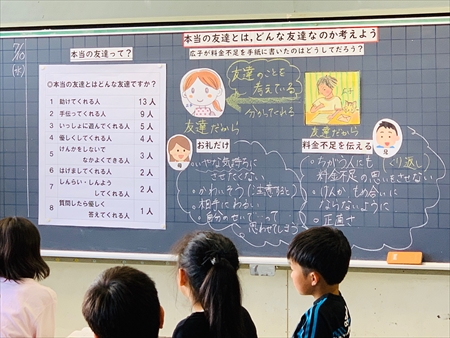 7/10
(水)
本当の友達って?
本当の友達とは、どんな友達なのか考えよう
広子が料金不足を手紙に書いたのはどうしてだろう?
◎本当の友達とはどんな友達ですか?
1 助けてくれる人 13人
2 手伝ってくれる人 9人
3 いっしょに遊んでくれる人 5人
4 優しくしてくれる人 4人
5 けんかをしないで
なかよくできる人 3人
6 はげましてくれる人 2人
7 しんらい・しんよう
してくれる人 2人
8 質問したら優しく
答えてくれる人 1人
友達のことを
考えている
分かってくれる
友達だから
友達だから
お礼だけ
母
・いやな気持ちに
させたくない
・かわいそう(注意すると)
・相手にわるい
・自分のせいで…って
思わせてしまう
料金不足を伝える
兄
・ちがう人にも(くり返し)
料金不足の思いをさせない
・けんか もめ合いに
ならないように
・正直さ